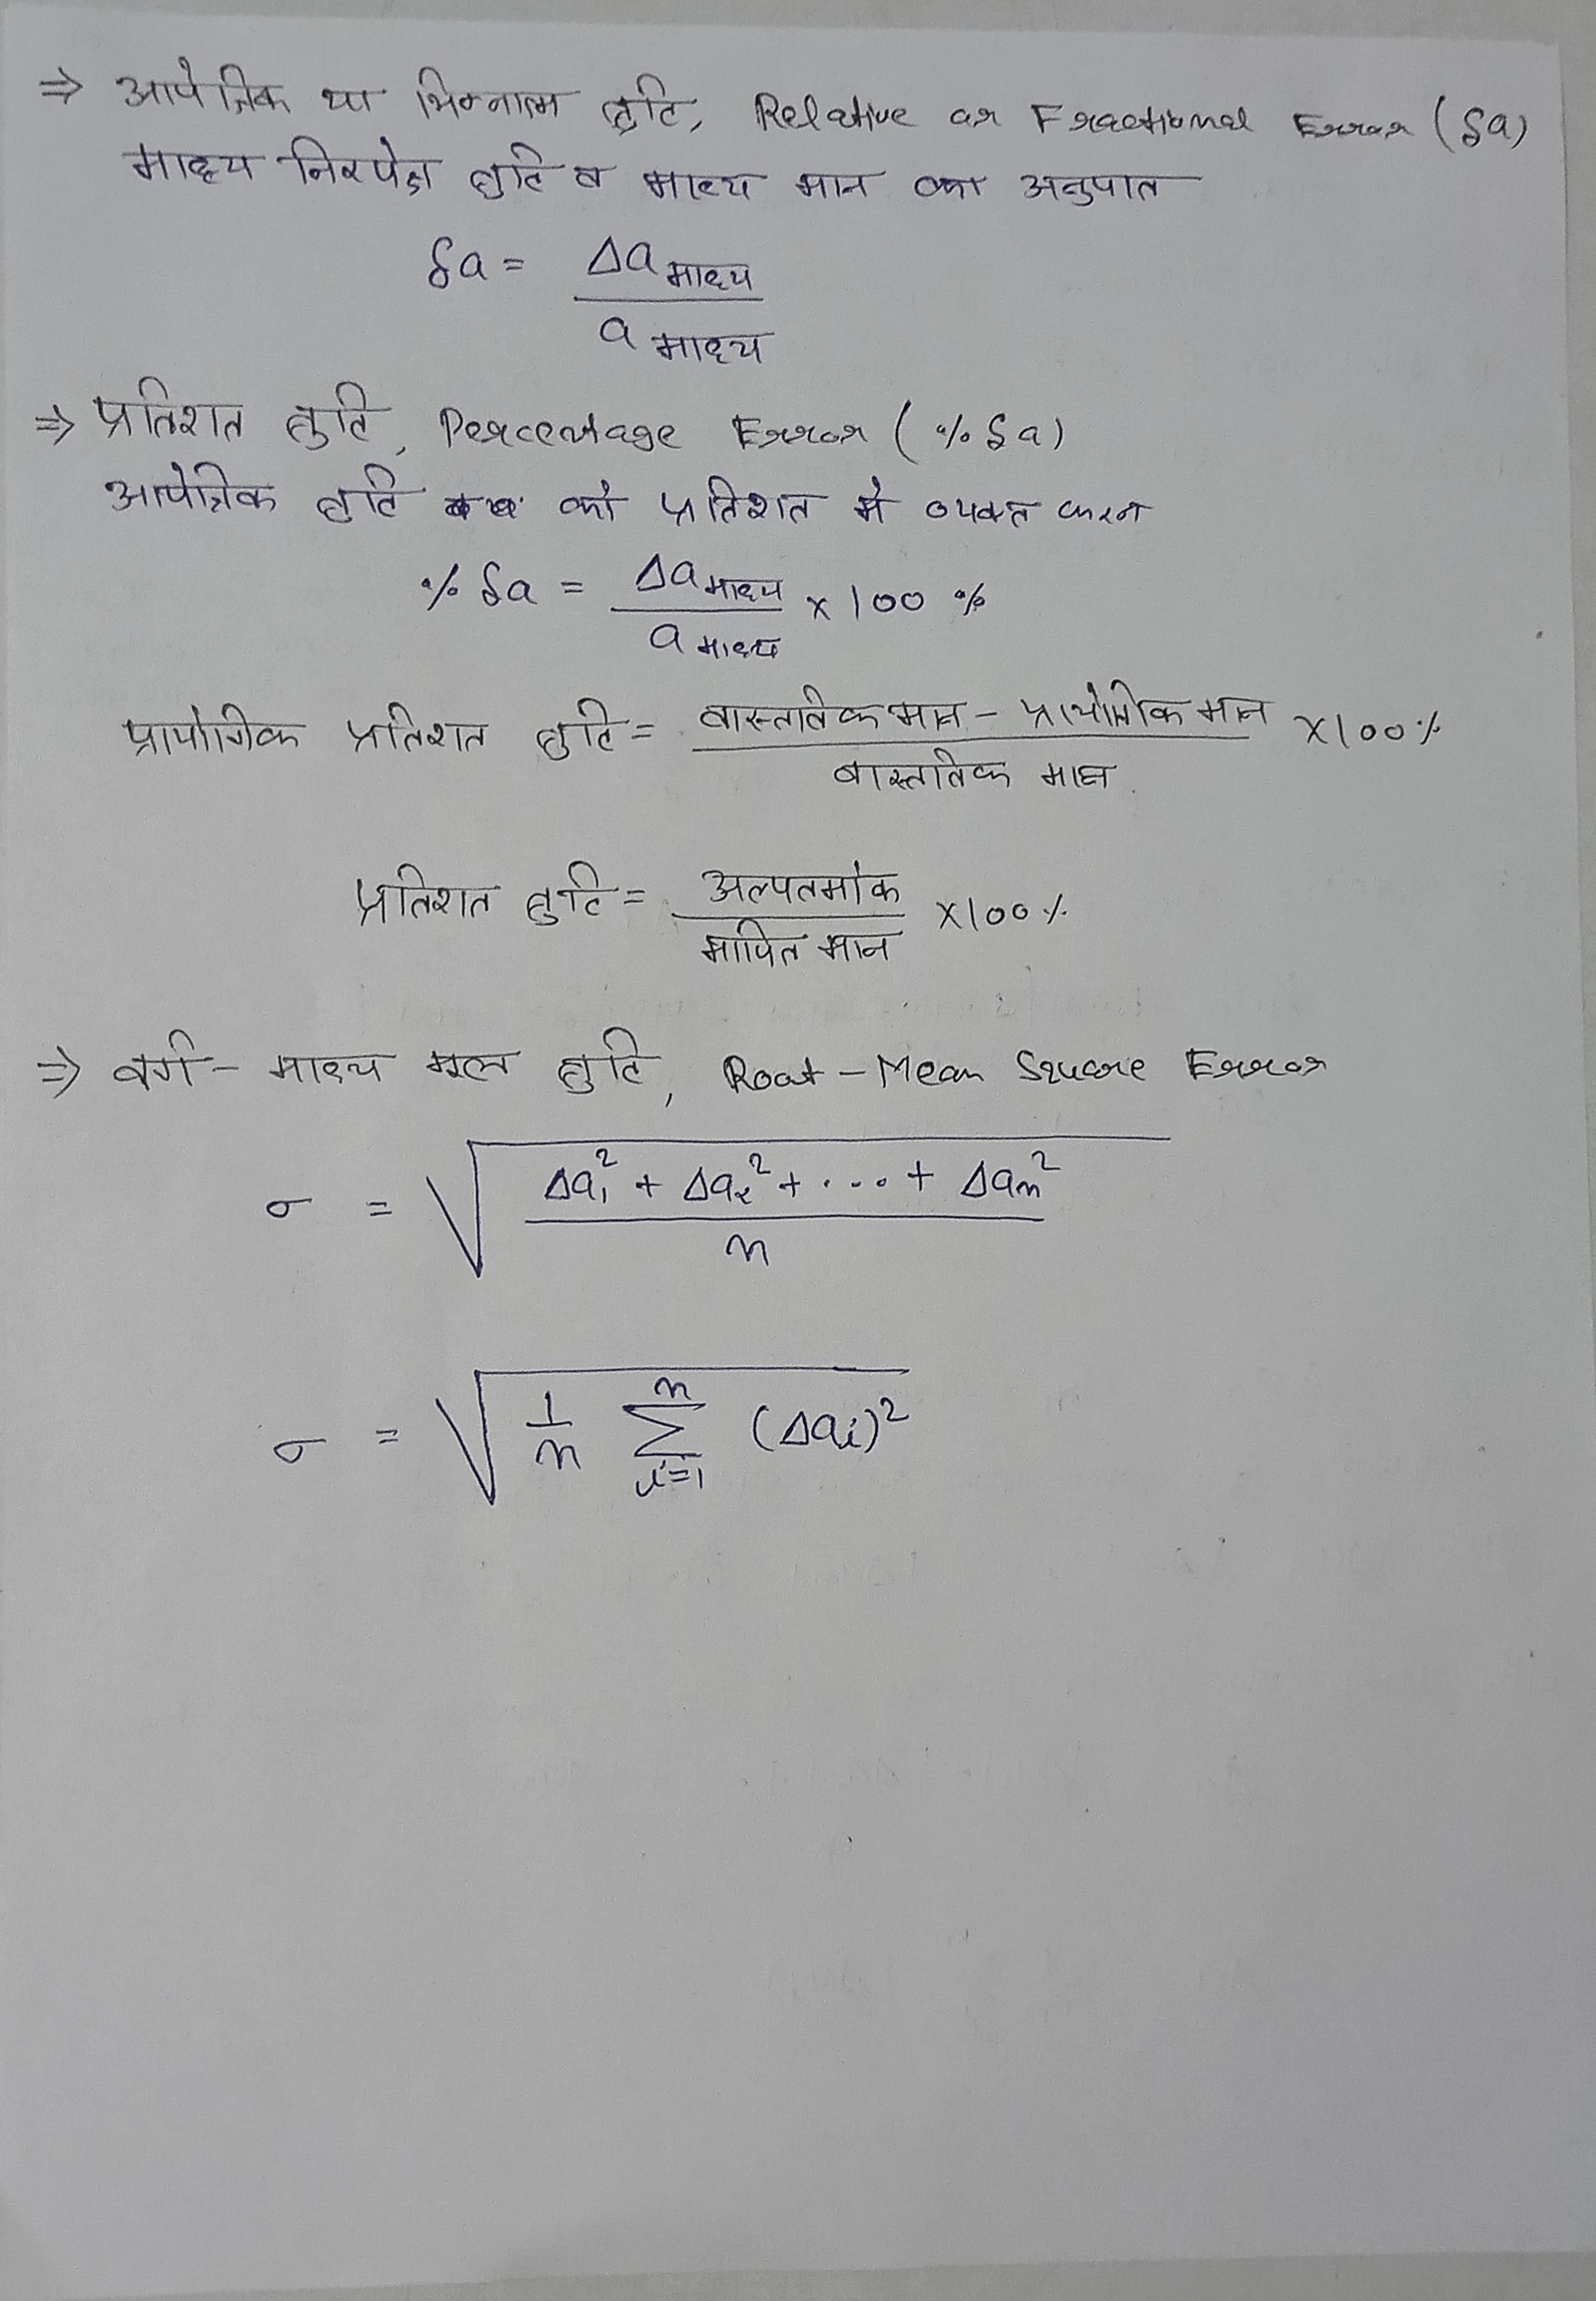 ⇒ आपेक्षिक या भिन्नात्म त्रुटि, Relative or Fractional Error (δa)
माध्य निरपेक्ष त्रुटि व माध्य मान का अनुपात
δa = Δa माध्य / a माध्य
⇒ प्रतिशत त्रुटि, Percentage Error (% δa)
आपेक्षिक त्रुटि को प्रतिशत में व्यक्त करना
% δa = Δa माध्य / a माध्य × 100 %
प्रायोगिक प्रतिशत त्रुटि = वास्तविक मान - प्रायोगिक मान / वास्तविक मान × 100 %
प्रतिशत त्रुटि = अल्पतमांक / मापित मान × 100 %
⇒ वर्ग - माध्य मूल त्रुटि, Root - Mean Square Error
σ = √(Δa₁² + Δa₂² + .... + Δaₙ² / n)
σ = √(1/n Σ_{i=1}^{n} (Δaᵢ)²)